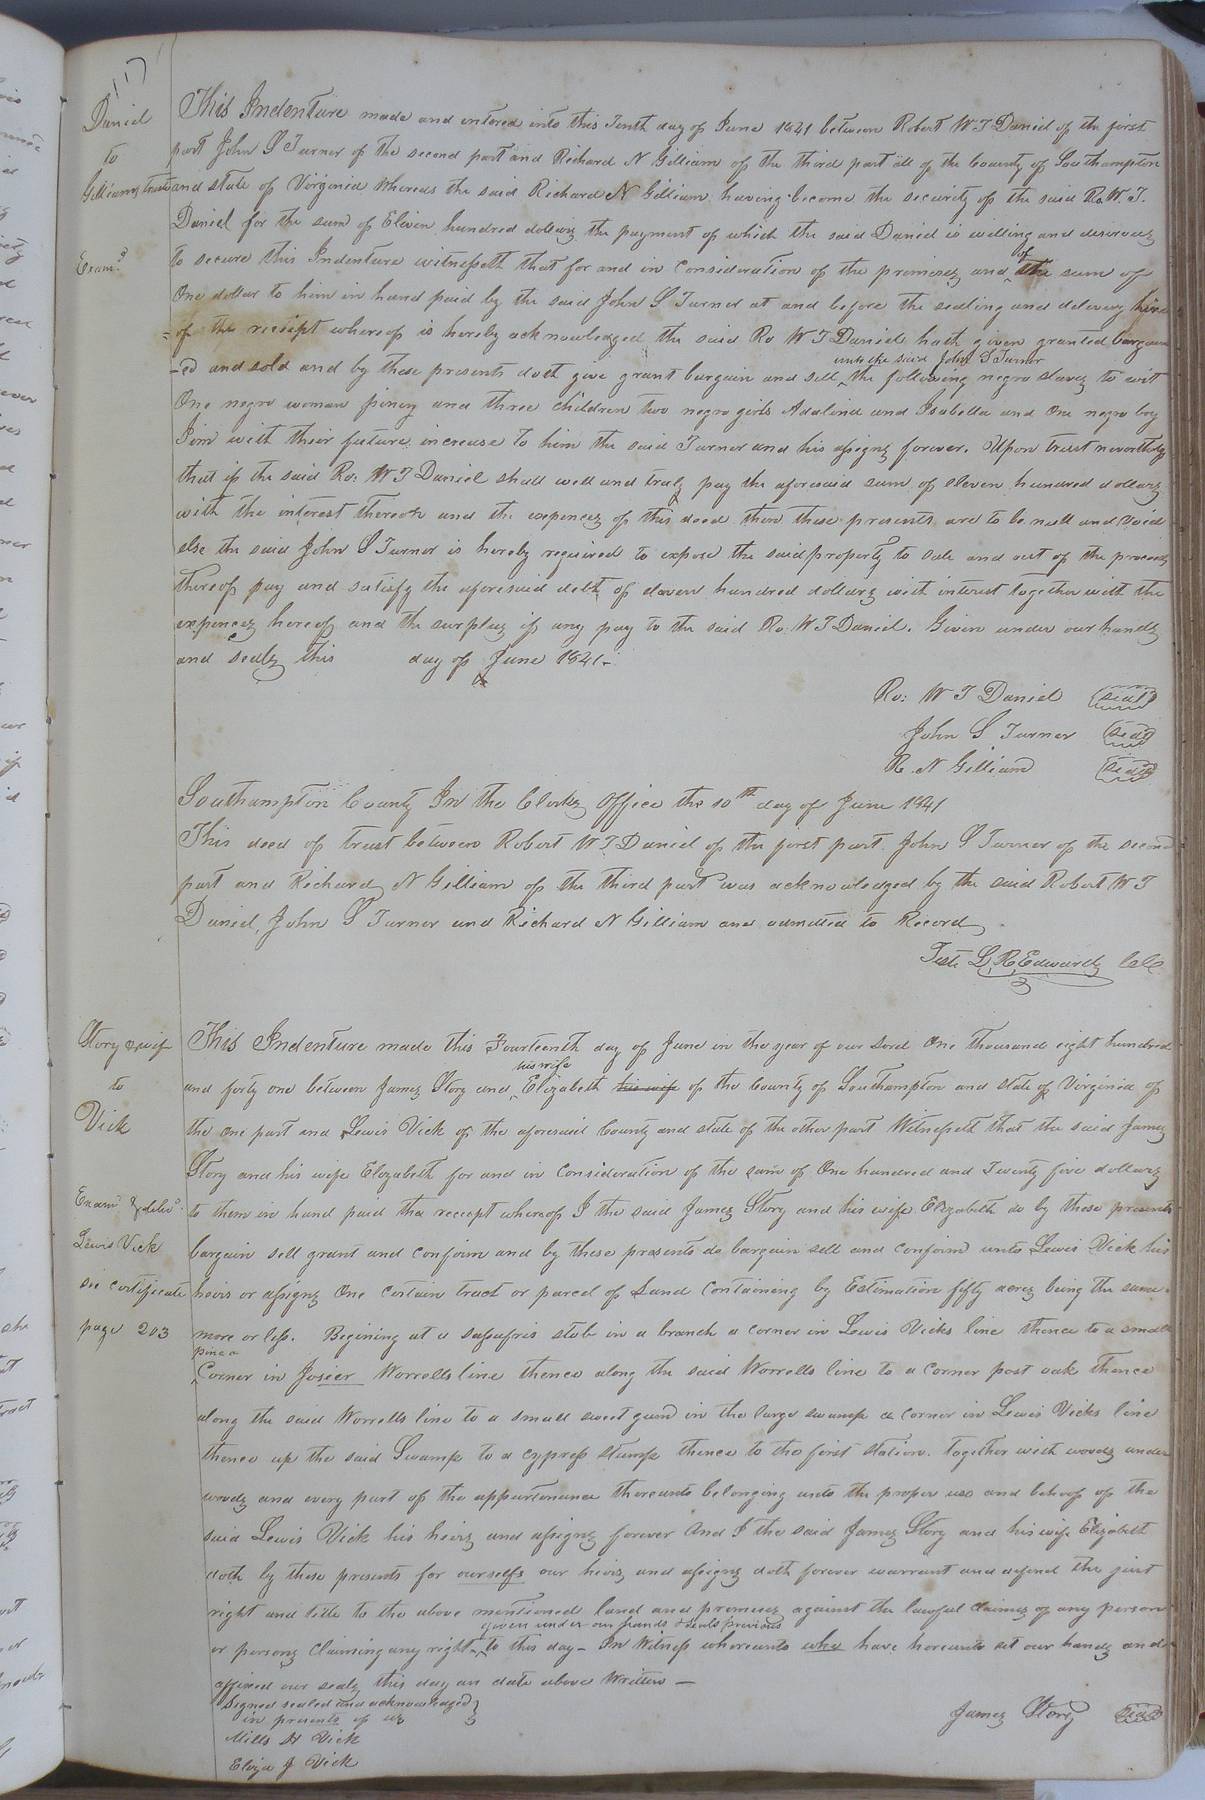 117
Daniel
to
Gilliams trust
Exam.d
This Indenture made and entered into this Tenth day of June 1841 between Robert W T Daniel of the first
part John S Turner of the second part and Richard N Gilliam of the third part all of the County of Southampton
and state of Virginia Whereas the said Richard N Gilliam having become the security of the said Ro. W. T.
Daniel for the sum of Eleven hundred dollars the payment of which the said Daniel is willing and desirous
to secure this Indenture witnesseth that for and in consideration of the premises and of the sum of
One dollar to him in hand paid by the said John S Turner at and before the sealing and delivery here
=of the receipt whereof is hereby acknowledged the said Ro W T Daniel hath given granted bargain
unto the said John S Turner
-ed and sold and by these presents doth give grant bargain and sell the following negro slaves to wit
One negro woman and three children two negro girls Adalind and Isabella and One negro boy
Jim with their future increase To him the said Turner and his assigns forever. Upon trust nevertheless
that if the said Ro: W T Daniel shall well and truly pay the aforesaid sum of eleven hundred dollars
with the interest thereon and the expences of this deed then these presents are to be null and void
else the said John S Turner is hereby required to expose the said property to sale and out of the proceeds
thereof pay and satisfy the aforesaid debt of eleven hundred dollars with interest together with the
expences hereof and the surplus if any pay to the said Ro: W T Daniel. Given under our hands
and seals this day of June 1841-
Ro: W T Daniel seal
John S Turner seal
R. N Gilliam seal
Southampton County In the Clerks Office the 10th day of June 1841
This deed of trust between Robert W T Daniel of the first part John S Turner of the second
part and Richard N Gilliam of the third part was acknowledged by the said Robert W T
Daniel, John S Turner and Richard N Gilliam and admitted to Record
Teste L. R. Edwards CC
Story & wife
to
Vick
Exam.d & deliv.d
Lewis Vick
see certificate
page 203
This Indenture made this Fourteenth day of June in the year of our Lord One thousand eight hundred
his wife
and forty one between James Story and Elizabeth his wife of the County of Southampton and state of Virginia of
the one part and Lewis Vick of the aforesaid County and state of the other part Witnesseth that the said James
Story and his wife Elizabeth for and in consideration of the sum of One hundred and Twenty five dollars
to them in hand paid the receipt whereof I the said James Story and his wife Elizabeth do by these presents
bargain sell grant and confirm and by these presents do bargain sell and conform unto Lewis Vick his
heirs or assigns One certain tract or parcel of Land Containing by Estimation fifty acres being the same
more or less. Begining at a sassafris stob in a branch a corner in Lewis Vicks line thence to a small
pine a
Corner in Josier Worrells line thence along the said Worrells line to a corner post oak thence
along the said Worrells line to a small sweet gum in the large swamp a corner in Lewis Vicks line
thence up the said Swamp to a cypress stump thence to the first station. together with woods under
woods and every part of the appurtenance thereunto belonging unto the proper use and behoof of the
said Lewis Vick his heirs and assigns forever And I the said James Story and his wife Elizabeth
doth by these presents for ourselfs our heirs and assigns doth forever warrant and defend the just
right and title to the above mentioned land and premises against the lawful claimes of any person
given under our hands & seals previous
or persons claiming any right to this day- In Witness whereunto who have hereunto set our hands and
affixed our seals this day an date above Written —
Signed sealed and acknowledged
in presents of us
Mills H Vick
Eliza J Vick
James Story seal